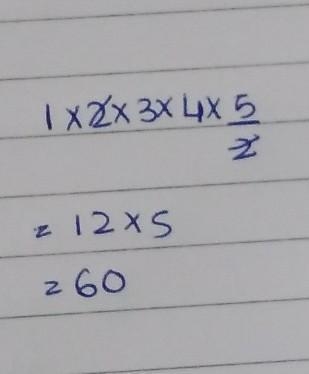 1×2×3×4×5/2
=12×5
=60